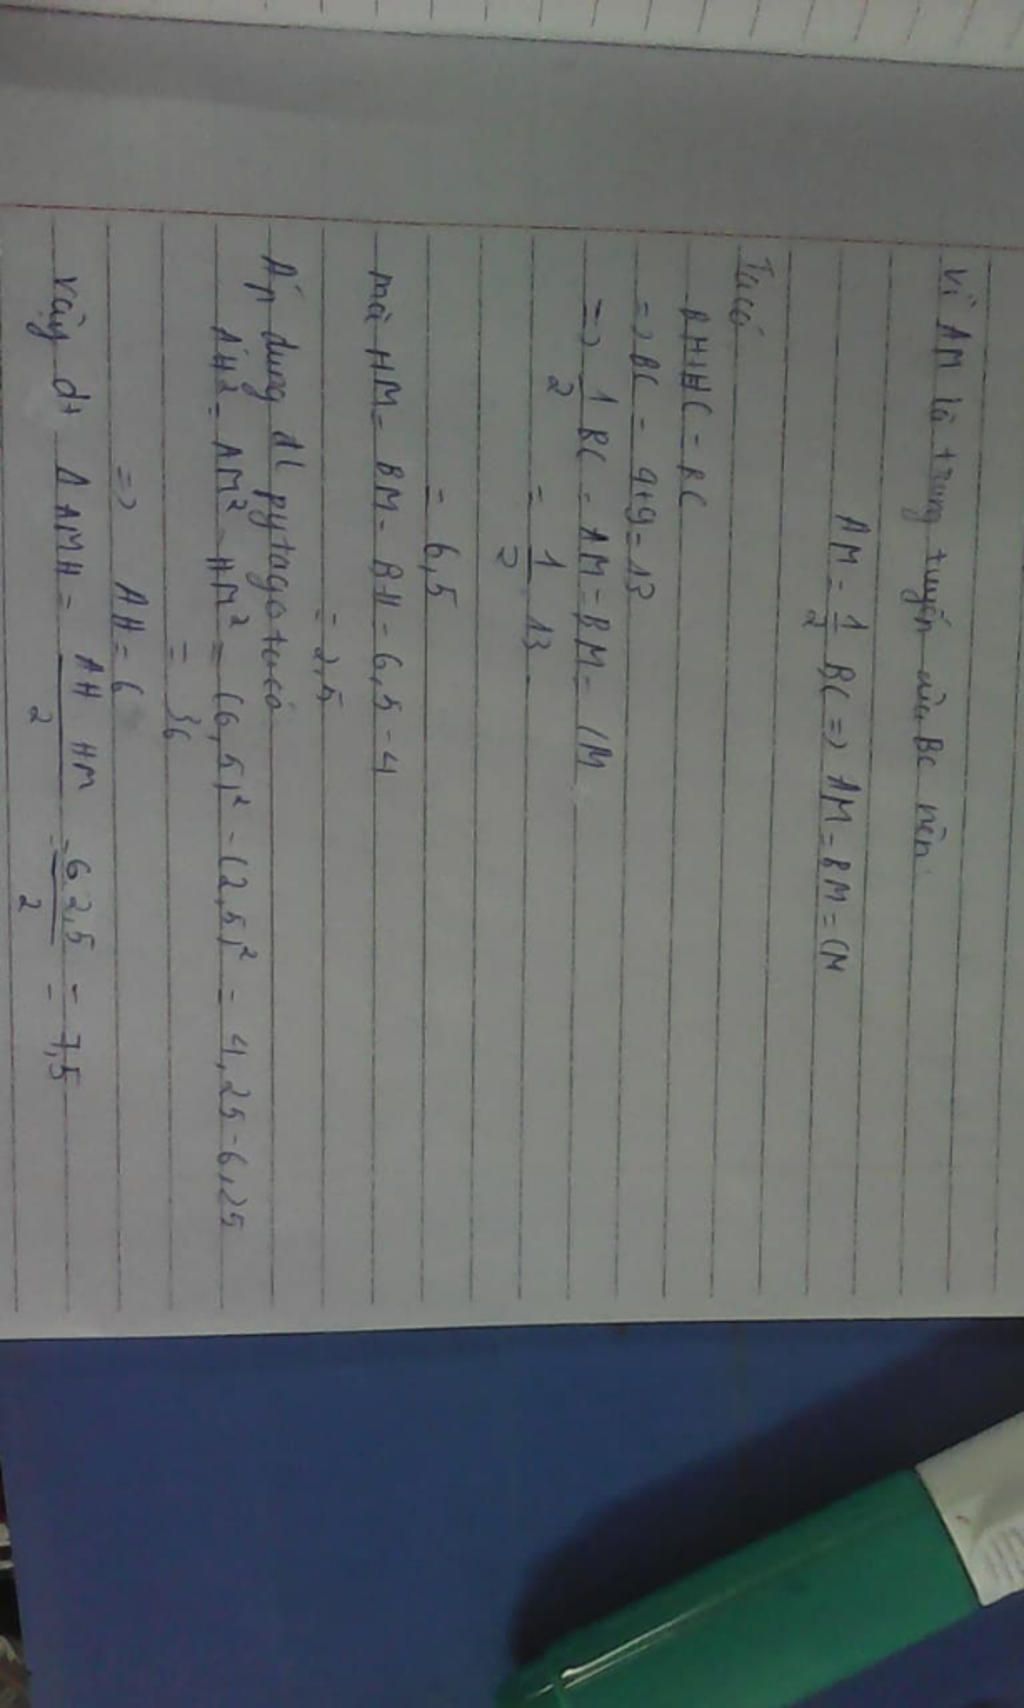 Vì AM là trung tuyến của BC nên
AM = 1/2 BC => AM = BM = CM
Ta có
BH+HC = BC
=> BC = 4+9 = 13
=> 1/2 BC = AM = BM = CM
= 1/2 13
= 6,5
mà HM = BM - BH = 6,5 - 4
= 2,5
Áp dụng đl pytago ta có
AH² = AM² - HM² = (6,5)² - (2,5)² = 4,25 - 6,25
= 36
=> AH = 6
Vậy dt Δ AMH = AH HM / 2 = 6 2,5 / 2 = 7,5